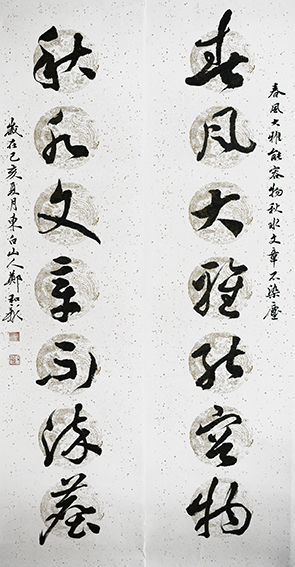 春風大雅能容物秋水文章不染塵
春風大雅能容物
秋水文章不染塵
歲在己亥夏月東白山人鄭和新